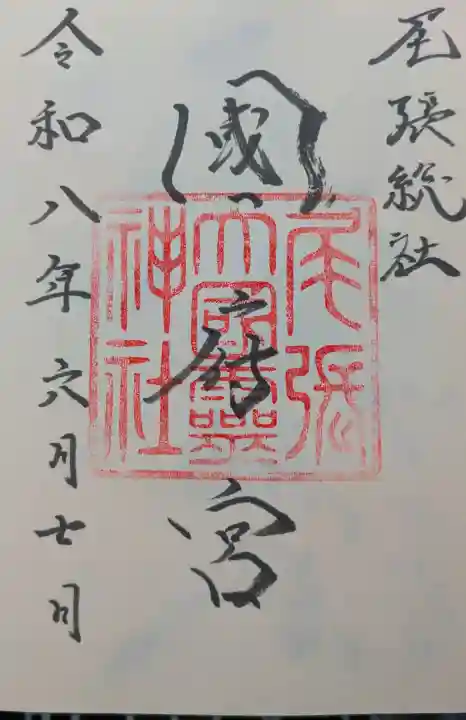 尾張総社
國府宮
尾張
大國霊
神社
令和八年六月七日